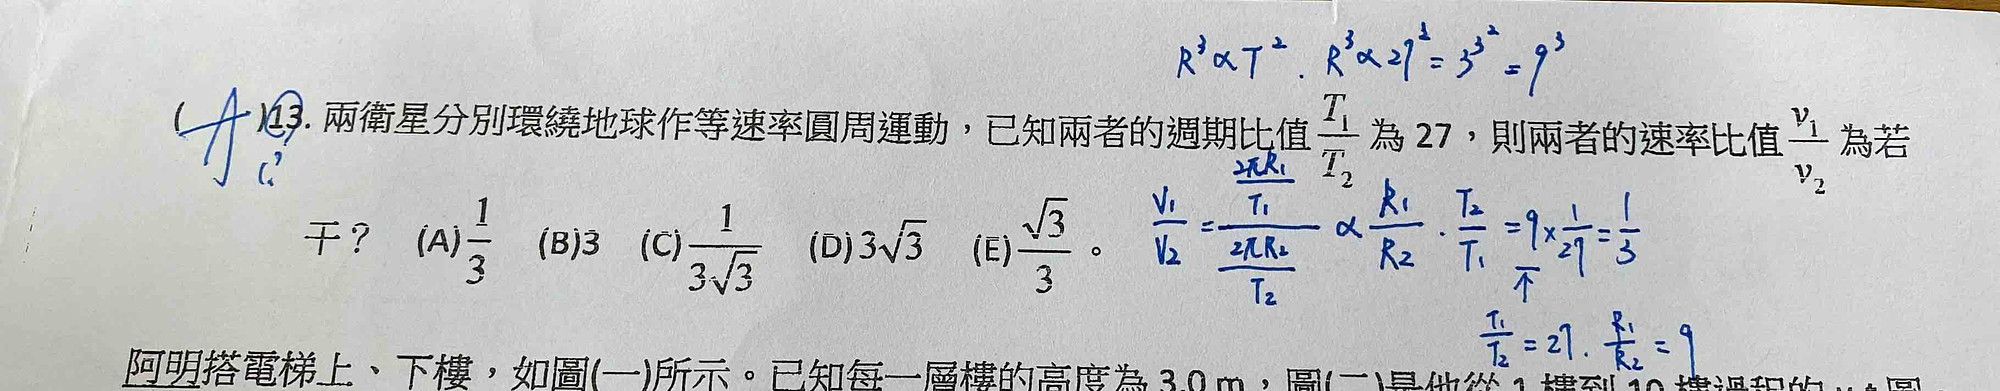 R³ ∝ T². R³ ∝ 27² = 3³² = 9³
( A )13. 兩衛星分別環繞地球作等速率圓周運動，已知兩者的週期比值 T₁/T₂ 為 27，則兩者的速率比值 v₁/v₂ 為若
干？ (A) 1/3 (B)3 (C) 1/(3√3) (D) 3√3 (E) √3/3 。
V₁/V₂ = (2πR₁/T₁)/(2πR₂/T₂) ∝ R₁/R₂ · T₂/T₁ = 9 × 1/27 = 1/3
↑
T₁/T₂ = 27. R₁/R₂ = 9
阿明搭電梯上、下樓，如圖(一)所示。已知每一層樓的高度為 3.0 m，圖(二)是他從 1 樓到 10 樓過程的 v-t 圖